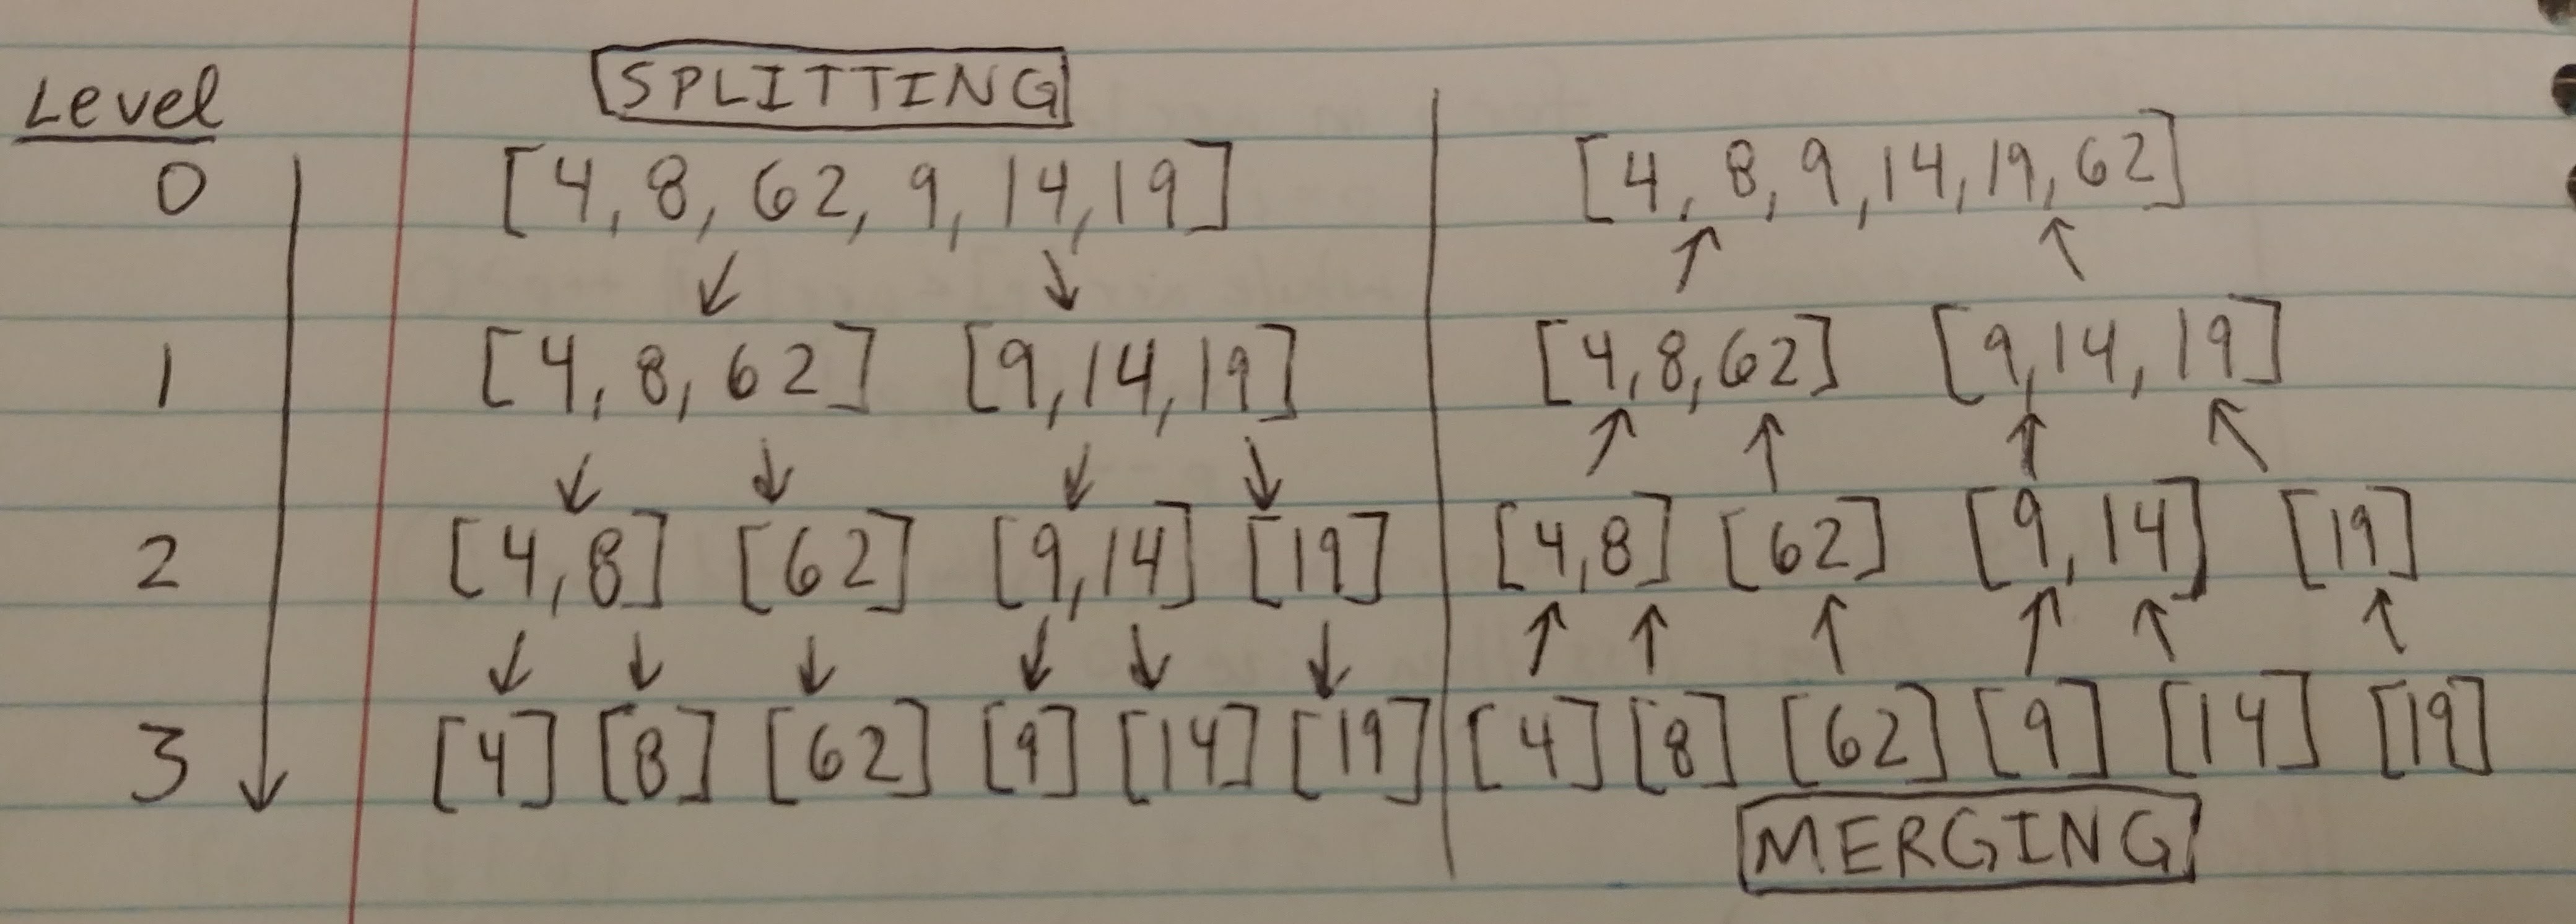 Level
SPLITTING
0
[4, 8, 62, 9, 14, 19]
[4, 8, 9, 14, 19, 62]
1
[4, 8, 62] [9, 14, 19]
[4, 8, 62] [9, 14, 19]
2
[4, 8] [62] [9, 14] [19]
[4, 8] [62] [9, 14] [19]
3
[4] [8] [62] [9] [14] [19]
[4] [8] [62] [9] [14] [19]
MERGING